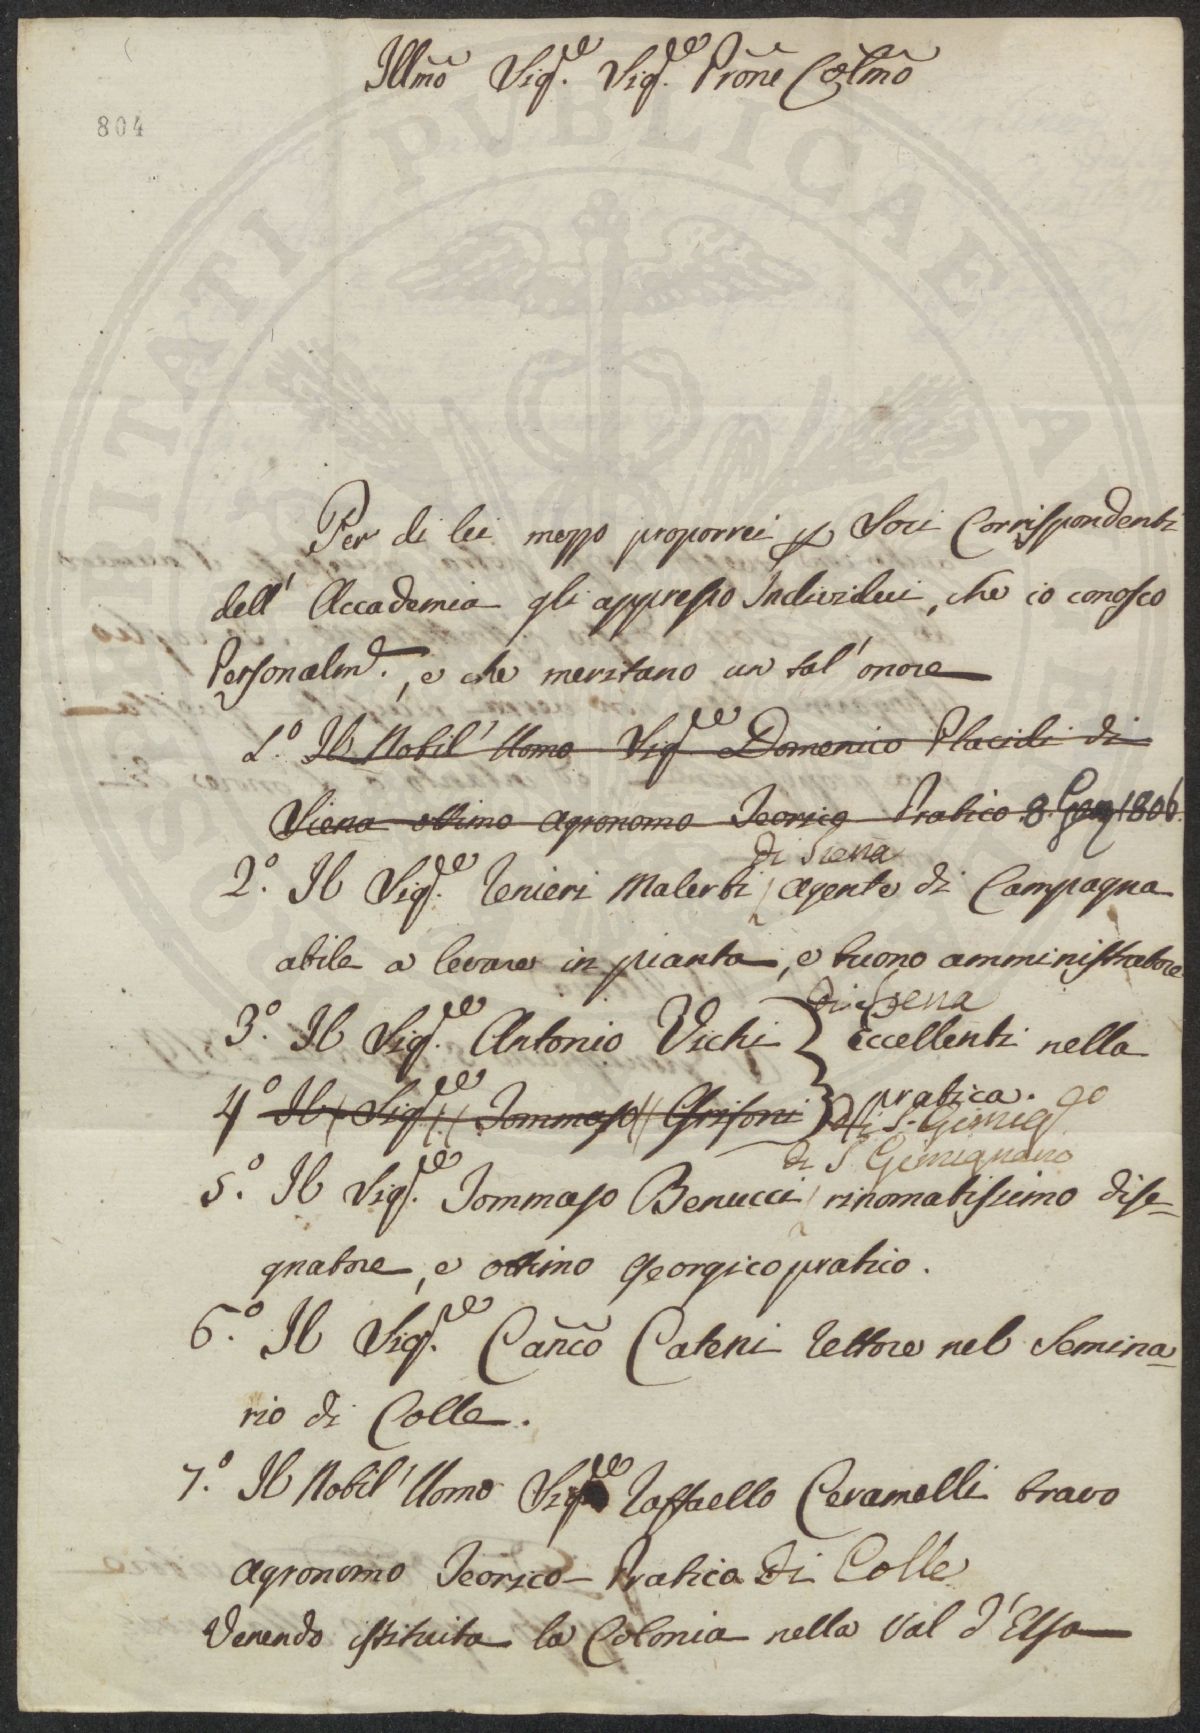 Illmo Sigre. Sigre. Prone Colmo
804
Per di lei mezzo proporrei p Soci Corrispondenti
dell' Accademia gli appresso Individui, che io conosco
Personalme., e che meritano un tal' onore
1.o Il Nobil' Uomo Sigre Domenico Placidi di
Siena ottimo agronomo Teorico Pratico 8 Gen 1806.
di Siena
2.o Il Sigre. Renieri Malerbi / agente di Campagna
abile a levare in pianta, e buono amministratore
di Siena
3.o Il Sigre. Antonio Vichi } Eccellenti nella
pratica.
4o Il Sigre. Tommaso Grifoni } di S. Gimigno
di S Gimignano
5.o Il Sigre. Tommaso Benucci / rinomatissimo dise=
gnatore, e ottimo Georgico pratico.
6.o Il Sigre. Canco Cateni Rettore nel Semina=
rio di Colle.
7.o Il Nobil' Uomo Sigre Raffaello Ceramelli bravo
agronomo Teorico-Pratico di Colle
Venendo istituita la Colonia nella Val d'Elsa
PUBLICAE